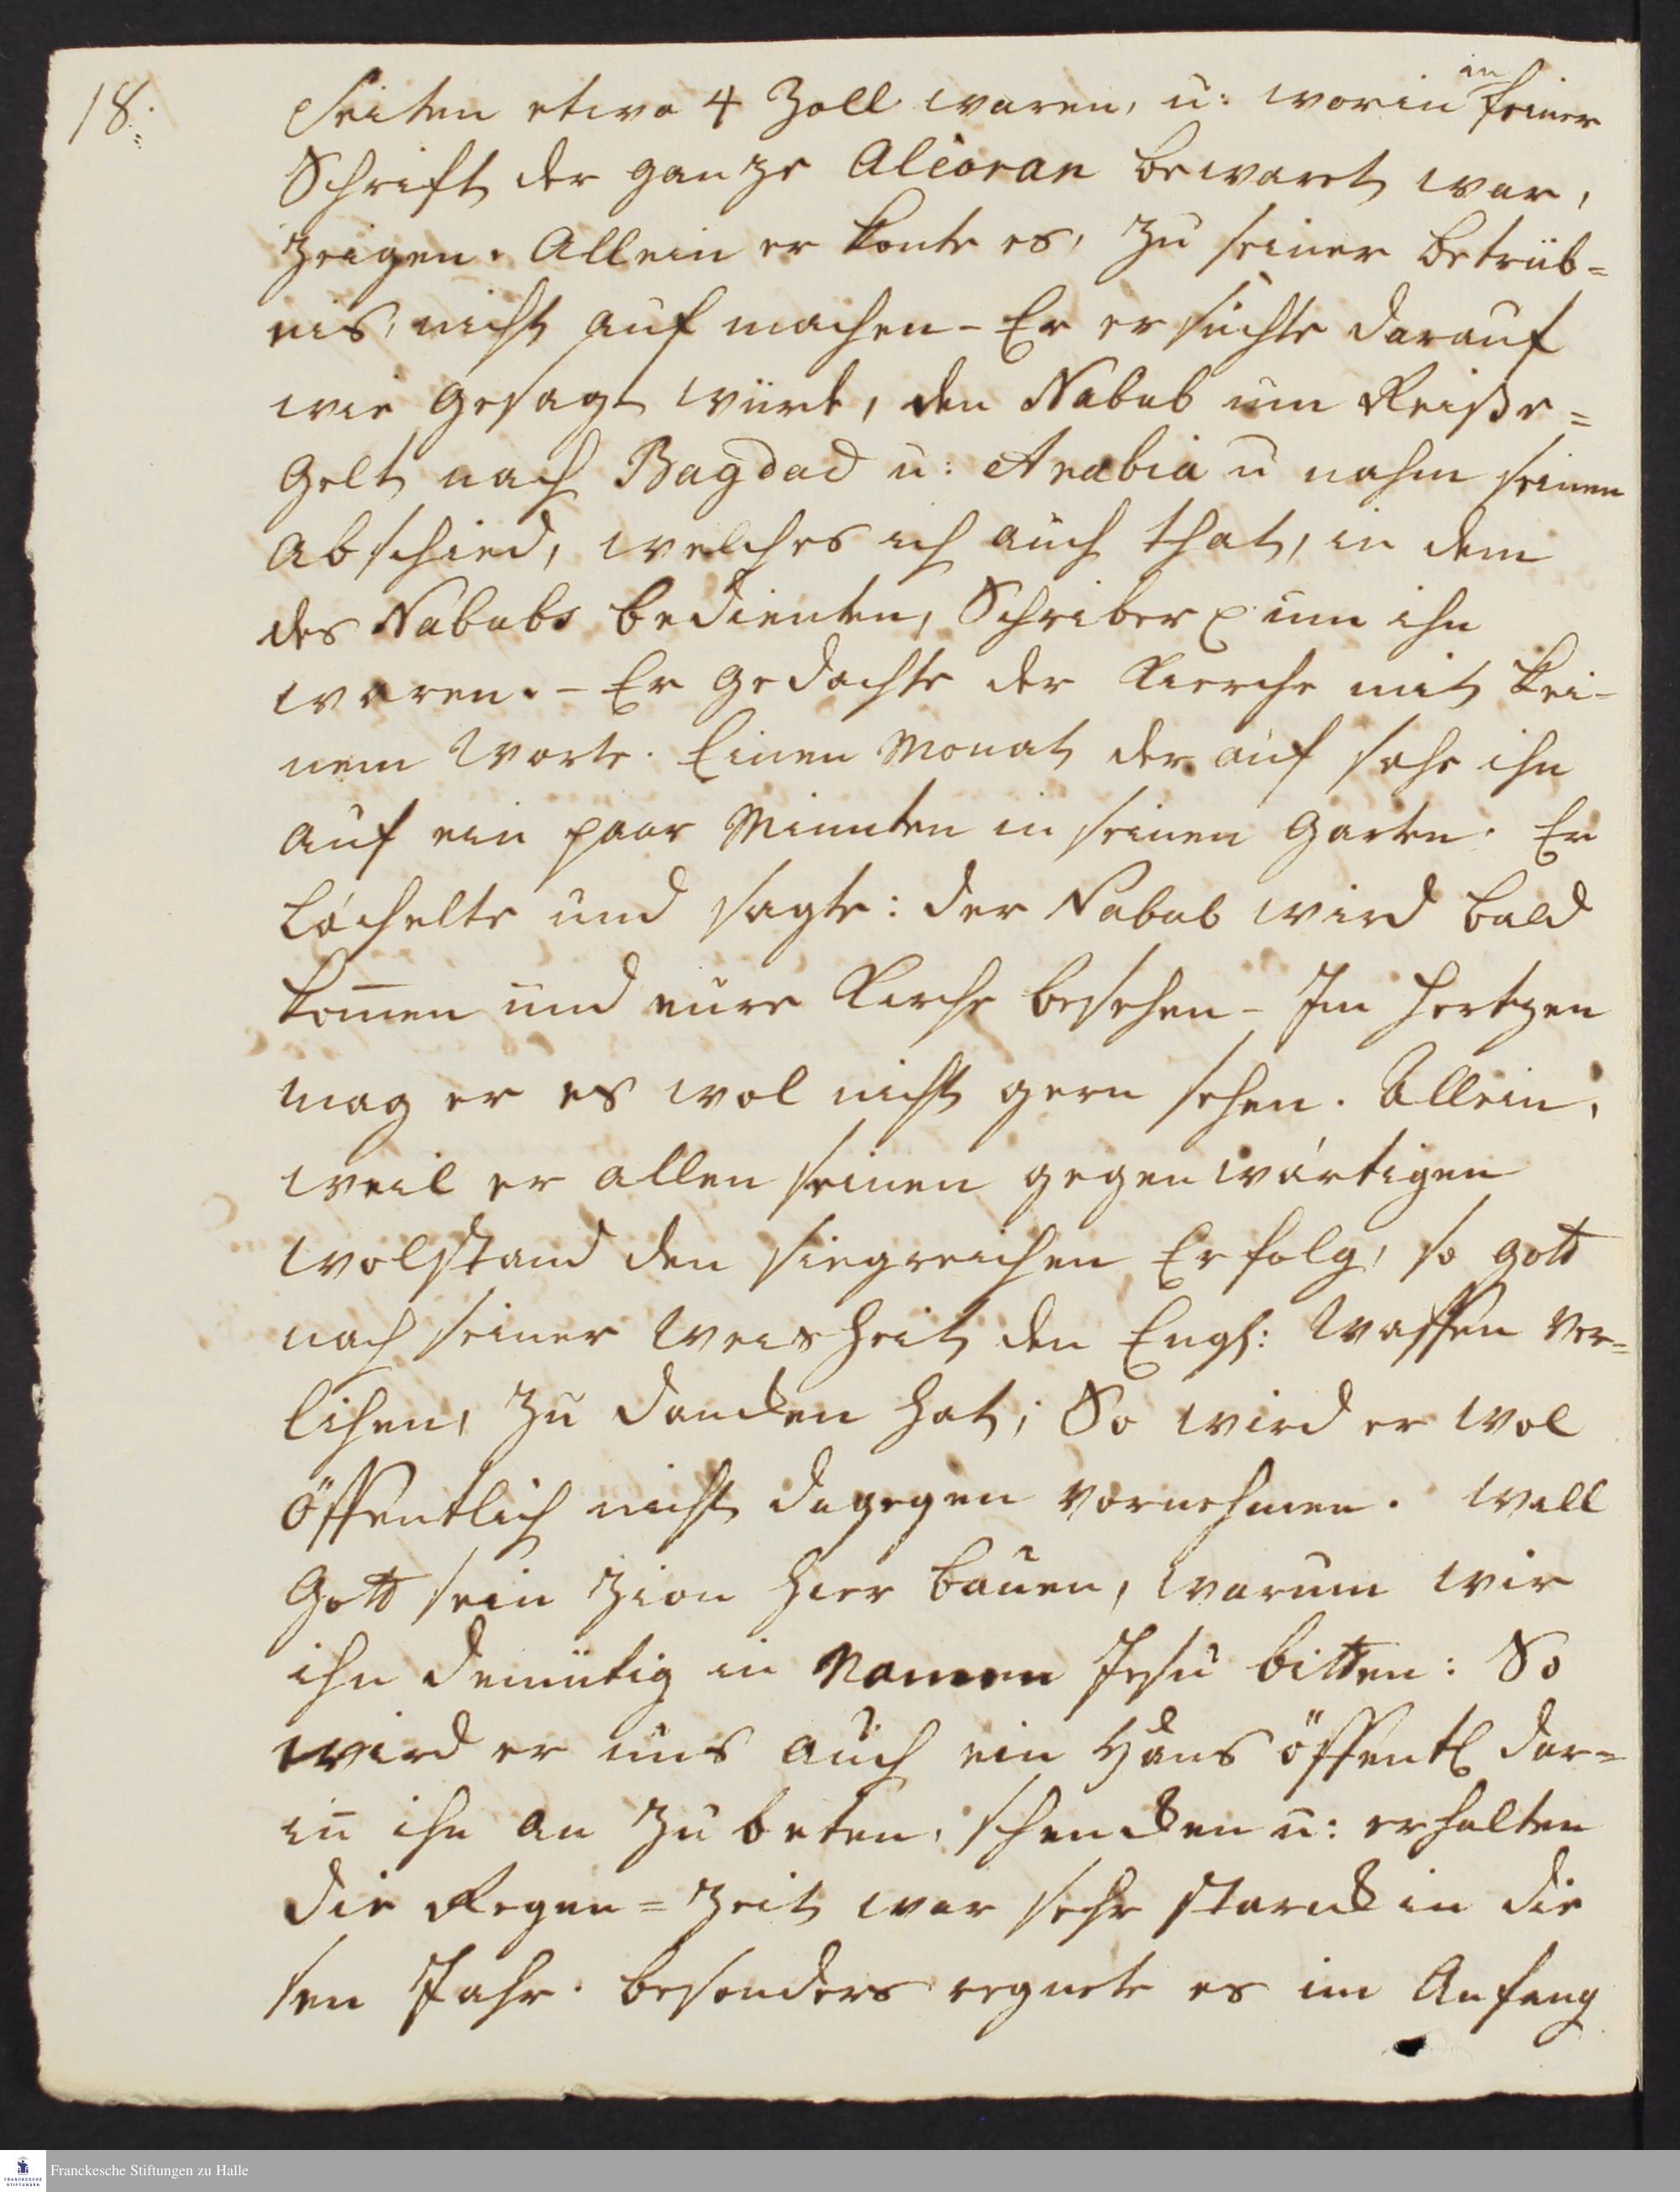 18.
Seiten etwa 4 Zoll waren, u: worin in feiner
Schrift der ganze Alcoran bewaret war,
zeigen. Allein er konte es, zu seiner Betrüb=
nis, nicht auf machen - Er ersuchte darauf
wie gesagt würde, den Nabab um Reiße=
Gelt nach Bagdad u: Arabia u nahm seinen
Abschied, welches ich auch that, in dem
des Nababs Bedienten, Schriber um ihn
waren. - Er gedachte der Kierche mit kei-
nem Worte. Einen Monat der auf sahe ihn
auf ein paar Minuten in seinen Garten. Er
lächelte und sagte: der Nabab wird bald
kom̄en und eure Kirche besehen - Im Hertzen
mag er es wol nicht gern sehen. Allein,
weil er allen seinen gegenwärtigen
wolstand den siegreichen Erfolg, so Gott
nach seiner Weisheit den Engl: Waffen ver=
lihen, zu dancken hat; So wird er wol
öffentlich nicht dagegen vornehmen. Will
Gott sein Zion hier bauen, warum wir
ihn demütig in Namen Jesu bitten: So
wird er uns auch ein Haus öffentl dar=
in̄ ihn an zu beten, schencken u: erhalten
die Regen=Zeit war sehr starck in die
sen Jahr. besonders regnete es im Anfang
Franckesche Stiftungen zu Halle